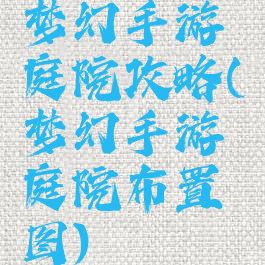 梦幻手游
庭院攻略(
梦幻手游
庭院布置
图)